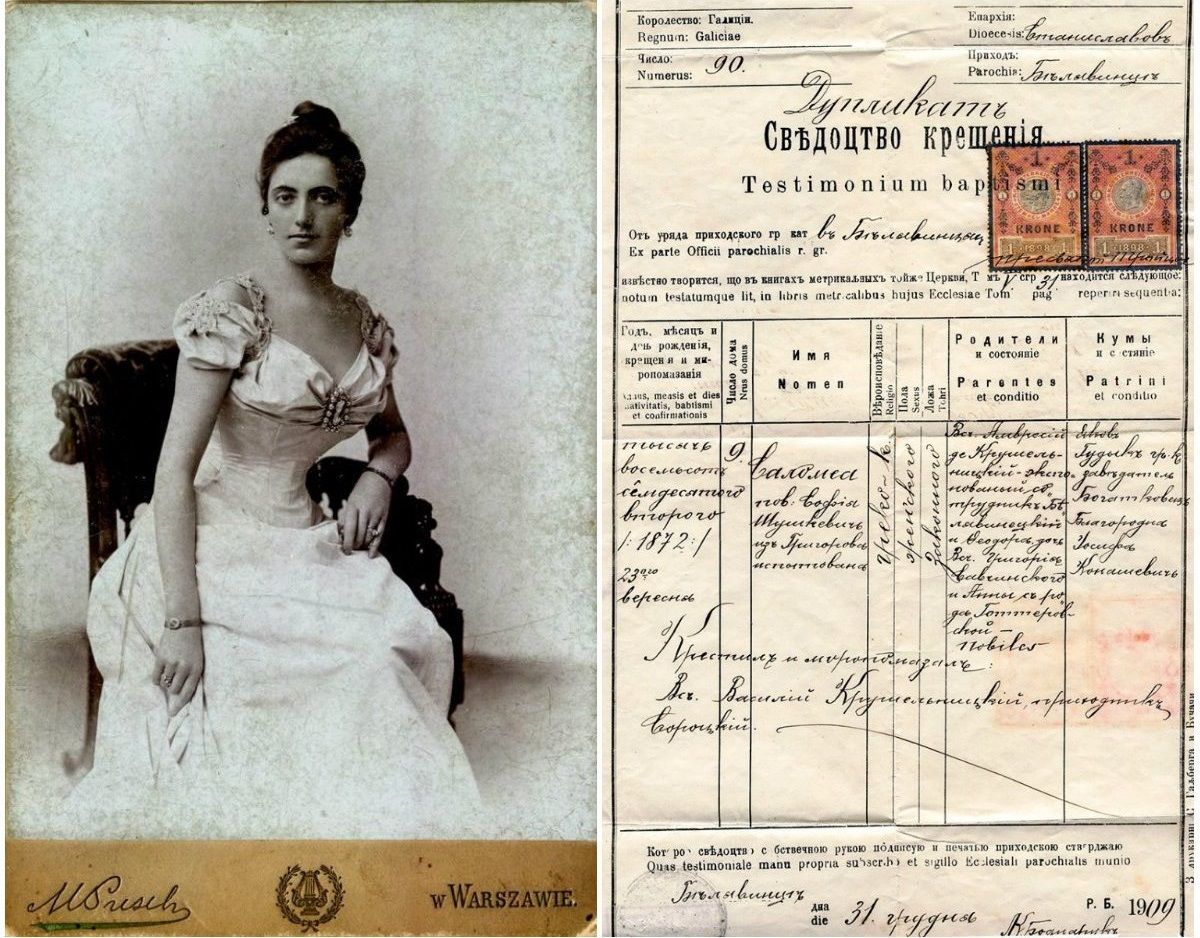 M Pusch
w WARSZAWIE.
Королество: Галиціи.
Regnum: Galiciae
Число:
Numerus: 90.
Епархія:
Dioecesis: Станиславовъ
Приходъ:
Parochia:
Дупликатъ
Свѣдоцтво крещенія
Testimonium baptismi
1 1
KRONE KRONE
1 1898 1 1 1898 1
Отъ уряда приходского гр кат въ
Ex parte Officii parochialis r. gr.
извѣстно творится, що въ книгахъ метрикальныхъ тойже Церкви, Т мъ V стр 31 находится слѣдующее:
notum testatumque fit, in libris metricalibus hujus Ecclesiae Tom pag reperiri sequentia:
Годъ, мѣсяцъ и
день рожденія,
крещенія и ми-
ропомазанія
Annus, mensis et dies
nativitatis, baptismi
et confirmationis
Число дома
Nrus domus
Имя
Nomen
Вѣроисповѣданіе
Religio
Пола
Sexus
Ложа
Thori
Родители
и состояніе
Parentes
et conditio
Кумы
и состяніе
Patrini
et conditio
тысячъ
восемьсотъ
семдесятого
второго
/: 1872 :/
23ого
вересня
9.
Саломеа
пов. Софія
Шушкевичъ
изъ Григорова
испытована
греко-к.
женского
законного
Вс. Амвросій
де Крушель-
ницкій
и Теодора доч.
Вс. Григорія
Савчинского
и Анны съ ро-
да
ской –
nobiles
Яковъ
Гудыкъ гр. к.
завѣдатель
Благородна
Іосифа
Конашевичъ
Крестилъ и моропомазалъ:
Вс. Василій Крушельницкій, приходникъ
Сороцкій.
Кот ро свѣдоцтво с бственою рукою подписую и печатью приходскою стверджаю
Quas testimoniale manu propria subscribo et sigillo Ecclesiali parochialis munio
дна
die 31. грудня
Р. Б. 1909